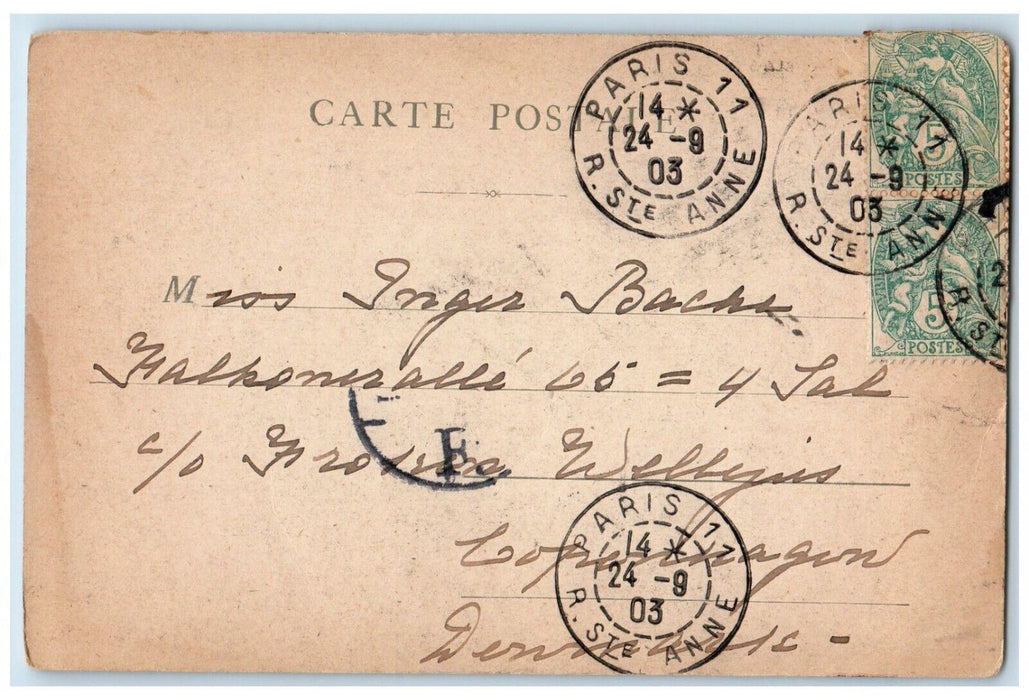 CARTE POSTALE
PARIS 11
14 *
24 - 9
03
R. STE ANNE
PARIS 11
14 *
24 - 9
03
R. STE ANNE
5
POSTES
5
POSTES
R. STE
Miss Inger Bache.
Falkoneralle 65 = 4 Sal
c/o Frøken
F.
Copenhagen
PARIS 11
14 *
24 - 9
03
R. STE ANNE